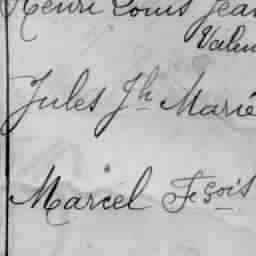 Henri Louis Jean
Valm
Jules Jh Marie
Marcel Fçois